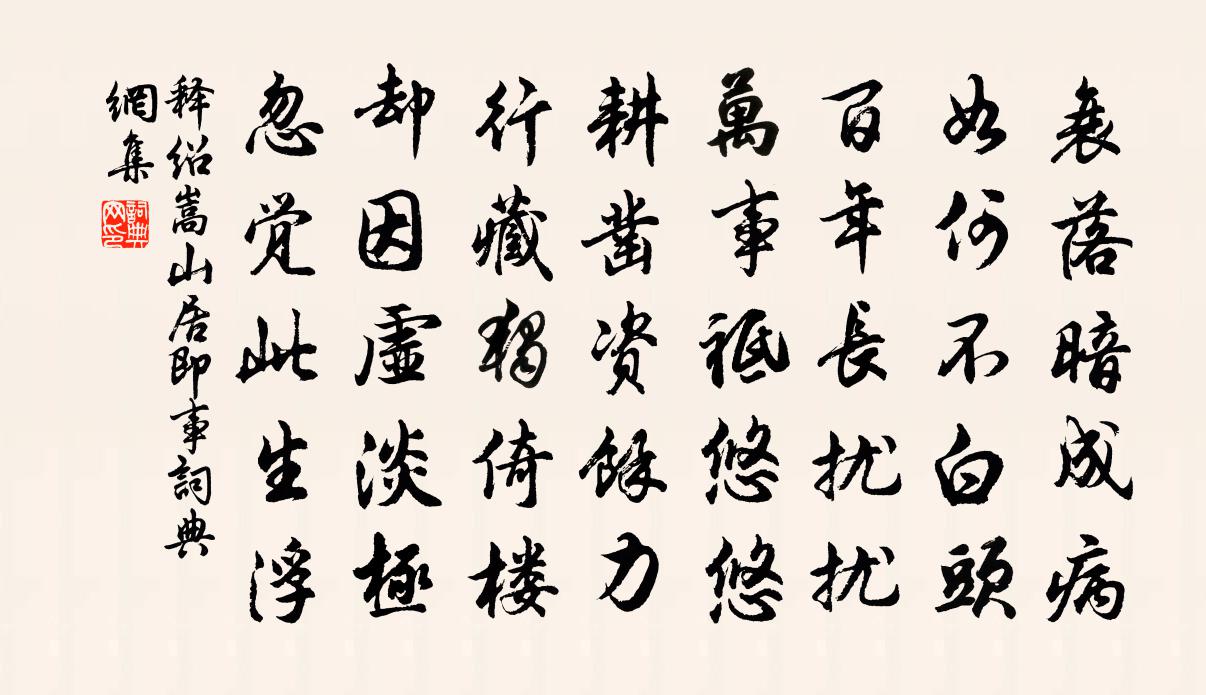 衰落暗成病
如何不白頭
百年長扰扰
萬事祗悠悠
耕凿资餘力
行藏獨倚楼
却因虚淡極
忽觉此生浮
释绍嵩山居即事詞典
網集
詞典网印